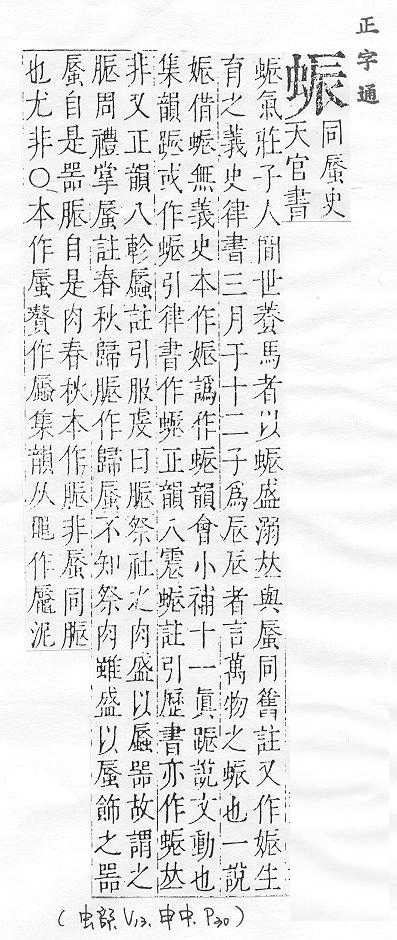 正字通
蜄
同蜃史
天官書
蜄氣莊子人間世養馬者以蜄盛溺𠀤與蜃同舊註又作娠生
育之義史律書三月于十二子為辰辰者言萬物之蜄也一說
娠借蜄無義史本作娠譌作蜄韻會小補十一眞䟴說文動也
集韻䟴或作蜄引律書作蜄正韻八震蜄註引歷書亦作蜄𠀤
非又正韻八軫註引服虔曰脤祭社之肉盛以器故謂之
脤周禮掌蜃註春秋歸脤作歸蜃不知祭肉雖盛以蜃飾之器
蜃自是器脤自是肉春秋本作脤非蜃同脤
也尤非〇本作蜃贅作集韻从黽作泥
(虫部.V13.申中.P30)